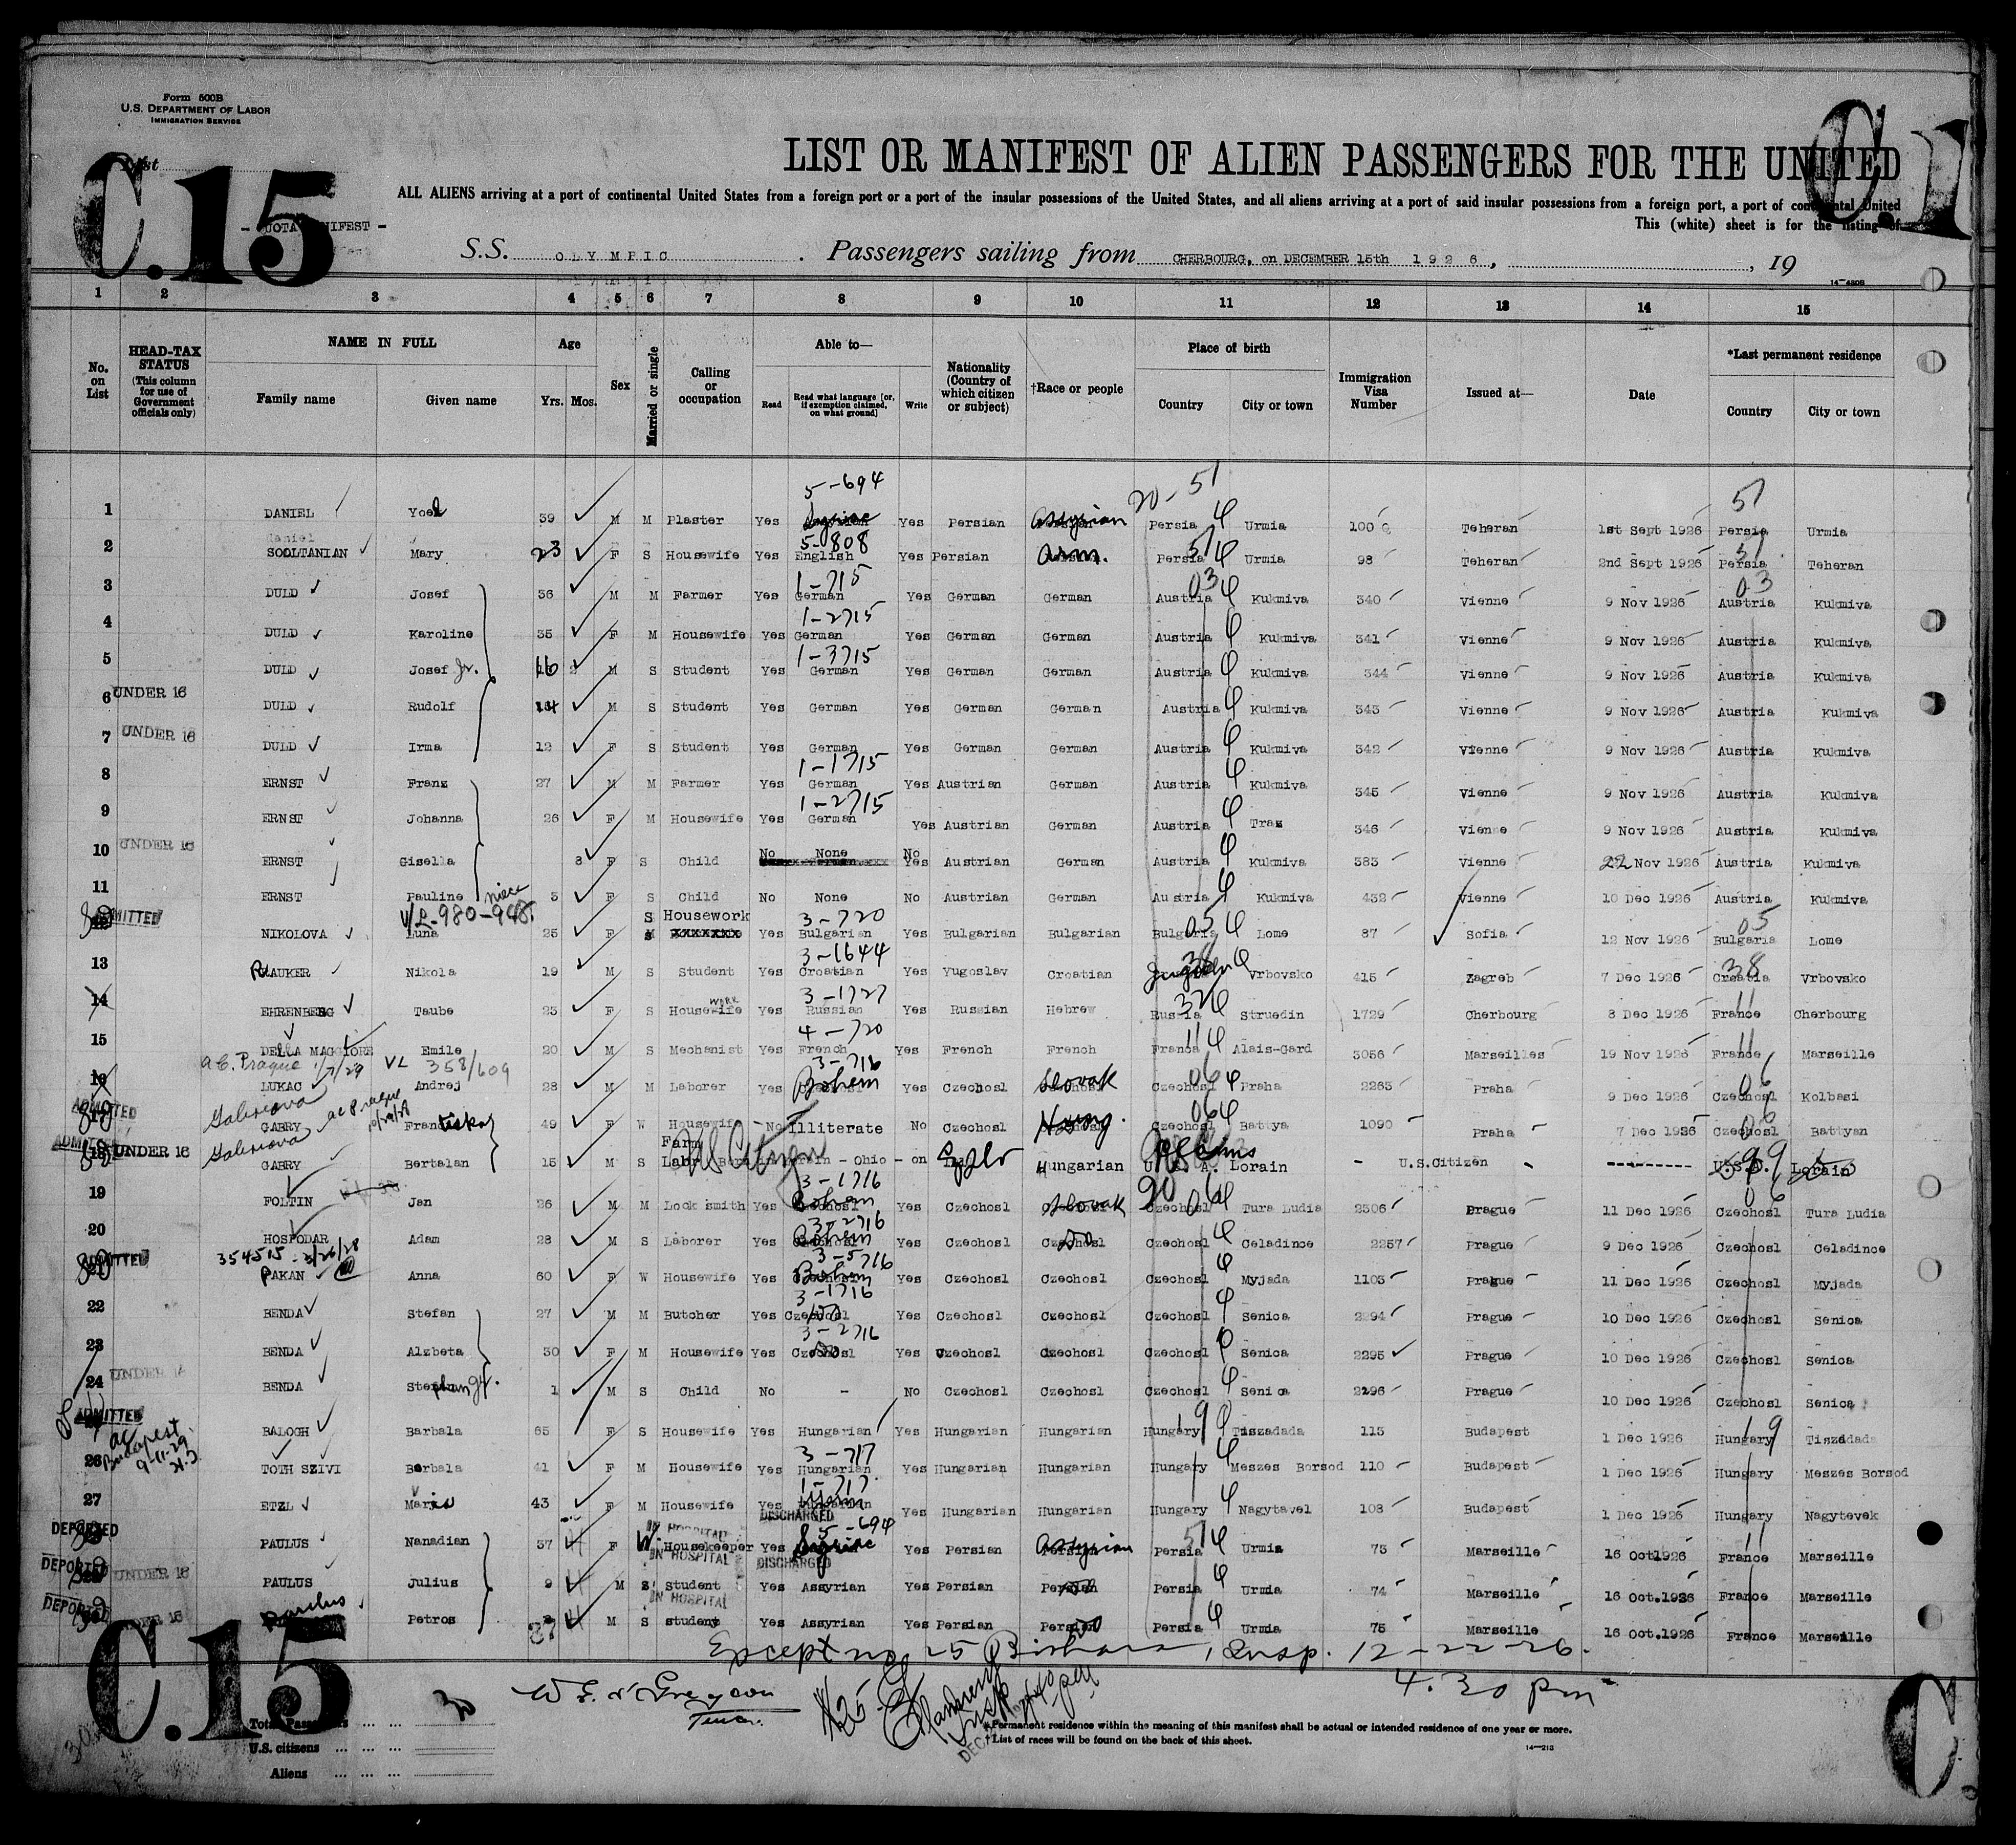 Form 500B
U.S. DEPARTMENT OF LABOR
IMMIGRATION SERVICE
List
C.15
C.1
LIST OR MANIFEST OF ALIEN PASSENGERS FOR THE UNITED
ALL ALIENS arriving at a port of continental United States from a foreign port or a port of the insular possessions of the United States, and all aliens arriving at a port of said insular possessions from a foreign port, a port of continental United
This (white) sheet is for the listing of
S.S. OLYMPIC . Passengers sailing from CHERBOURG, on DECEMBER 15th 1926, , 19
14—4206
1 2 3 4 5 6 7 8 9 10 11 12 13 14 15
No. on List
HEAD-TAX STATUS (This column for use of Government officials only)
NAME IN FULL
Family name Given name
Age
Yrs. Mos.
Sex
Married or single
Calling or occupation
Able to—
Read
Read what language [or, if exemption claimed, on what ground]
Write
Nationality (Country of which citizen or subject)
†Race or people
Place of birth
Country City or town
Immigration Visa Number
Issued at—
Date
*Last permanent residence
Country City or town
5-694 20-51 51
1 DANIEL Yoel 39 M M Plaster Yes Yes Persian Assyrian Persia Urmia 100 Teheran 1st Sept 1926 Persia Urmia
daniel 5-808
2 SOOLTANIAN Mary 23 F S Housewife Yes English Yes Persian Arm. Persia Urmia 98 Teheran 2nd Sept 1926 Persia Teheran
1-715 03 03
3 DULD Josef 36 M M Farmer Yes German Yes German German Austria Kukmiva 340 Vienne 9 Nov 1926 Austria Kukmiva
1-2715
4 DULD Karoline 35 F M Housewife Yes German Yes German German Austria Kukmiva 341 Vienne 9 Nov 1926 Austria Kukmiva
1-3715
5 DULD Josef Jr. 16 M S Student Yes German Yes German German Austria Kukmiva 344 Vienne 9 Nov 1926 Austria Kukmiva
6 UNDER 16 DULD Rudolf 14 M S Student Yes German Yes German German Austria Kukmiva 343 Vienne 9 Nov 1926 Austria Kukmiva
7 UNDER 16 DULD Irma 12 F S Student Yes German Yes German German Austria Kukmiva 342 Vienne 9 Nov 1926 Austria Kukmiva
1-1715
8 ERNST Franz 27 M M Farmer Yes German Yes Austrian German Austria Kukmiva 345 Vienne 9 Nov 1926 Austria Kukmiva
1-2715
9 ERNST Johanna 26 F M Housewife Yes German Yes Austrian German Austria Traz 346 Vienne 9 Nov 1926 Austria Kukmiva
No None No
10 UNDER 16 ERNST Gisella 8 F S Child Yes Austrian German Austria Kukmiva 383 Vienne 22 Nov 1926 Austria Kukmiva
11 ERNST Pauline niece 5 F S Child No None No Austrian German Austria Kukmiva 432 Vienne 10 Dec 1926 Austria Kukmiva
ADMITTED V/L-980-948 S Housework 3-720 05 05
NIKOLOVA Luna 25 F M XXXXXXX Yes Bulgarian Yes Bulgarian Bulgarian Bulgaria Lome 87 Sofia 12 Nov 1926 Bulgaria Lome
3-1644 38 38
13 Nikola 19 M S Student Yes Croatian Yes Yugoslav Croatian Vrbovsko 415 Zagreb 7 Dec 1926 Croatia Vrbovsko
WORK 3-1727
14 EHRENBERG Taube 25 F S Housewife Yes Russian Yes Russian Hebrew Russia Struedin 1729 Cherbourg 8 Dec 1926 France Cherbourg
4-720 11 11
15 DELLA MAGGIORE Emile 20 M S Mechanist Yes French Yes French French France Alais-Gard 3056 Marseilles 19 Nov 1926 France Marseille
a.C. Prague 1/7/29 VL 358/609 3-716
16 LUKAC Andrej 28 M M Laborer Yes Bohem Yes Czechosl Slovak Czechosl Praha 2263 Praha 9 Dec 1926 Czechosl Kolbasi
ADMITTED
GABRY Frantiska 49 F W Housewife No Illiterate No Czechosl Czechosl Battya 1090 Praha 7 Dec 1926 Czechosl Battyan
ADMITTED UNDER 16 US Citizen Farm
GABRY Bertalan 15 M S Labr Ohio - on Hungarian U. S. A. Lorain - U.S.Citizen - ---------- U.S.A. Lorain
3-1716
19 FOLTIN Jan 26 M M Lock smith Yes Bohem Yes Czechosl Slovak Czechosl Tura Ludia 2306 Prague 11 Dec 1926 Czechosl Tura Ludia
3-2716
20 HOSPODAR Adam 28 M S Laborer Yes Bohem Yes Czechosl Czechosl Czechosl Celadince 2257 Prague 9 Dec 1926 Czechosl Celadince
ADMITTED 354515 - 3/26/28 3-5716
PAKAN Anna 60 F W Housewife Yes Bohem Yes Czechosl Czechosl Czechosl Myjada 1105 Prague 11 Dec 1926 Czechosl Myjada
3-1716
22 BENDA Stefan 27 M M Butcher Yes Czechosl Yes Czechosl Czechosl Czechosl Senica 2294 Prague 10 Dec 1926 Czechosl Senica
3-2716
23 BENDA Alzbeta 30 F M Housewife Yes Czechosl Yes Czechosl Czechosl Czechosl Senica 2295 Prague 10 Dec 1926 Czechosl Senica
24 UNDER 16 BENDA Stephan Jr. 1 M S Child No - No Czechosl Czechosl Czechosl Senica 2296 Prague 10 Dec 1926 Czechosl Senica
ADMITTED 19 19
BALOGH Barbala 65 F S Housewife Yes Hungarian Yes Hungarian Hungarian Hungary Tiszadada 115 Budapest 1 Dec 1926 Hungary Tiszadada
Budapest 3-717
26 TOTH SZIVI Borbala 41 F M Housewife Yes Hungarian Yes Hungarian Hungarian Hungary Meszes Borsod 110 Budapest 1 Dec 1926 Hungary Meszes Borsod
1-717
27 ETZL Maria 43 F M Housewife Yes Yes Hungarian Hungarian Hungary Nagytavel 108 Budapest 1 Dec 1926 Hungary Nagytevek
DEPORTED IN HOSPITAL DISCHARGED 5-694 11
PAULUS Nanadian 37 F W. Housekeeper Yes Yes Persian Assyrian Persia Urmia 73 Marseille 16 Oct 1926 France Marseille
DEPORTED UNDER 16 IN HOSPITAL DISCHARGED
PAULUS Julius 9 M S student Yes Assyrian Yes Persian Persian Persia Urmia 74 Marseille 16 Oct.1926 France Marseille
DEPORTED UNDER 16 IN HOSPITAL
Paulus Petros M S student Yes Assyrian Yes Persian Persian Persia Urmia 75 Marseille 16 Oct.1926 France Marseille
Except no 25 Insp. 12-22-26.
4.30 pm
C.15
Total Passengers ... ... 30
U.S. citizens ... ... ...
Aliens ... ... ...
*Permanent residence within the meaning of this manifest shall be actual or intended residence of one year or more.
†List of races will be found on the back of this sheet.
14—213
C.